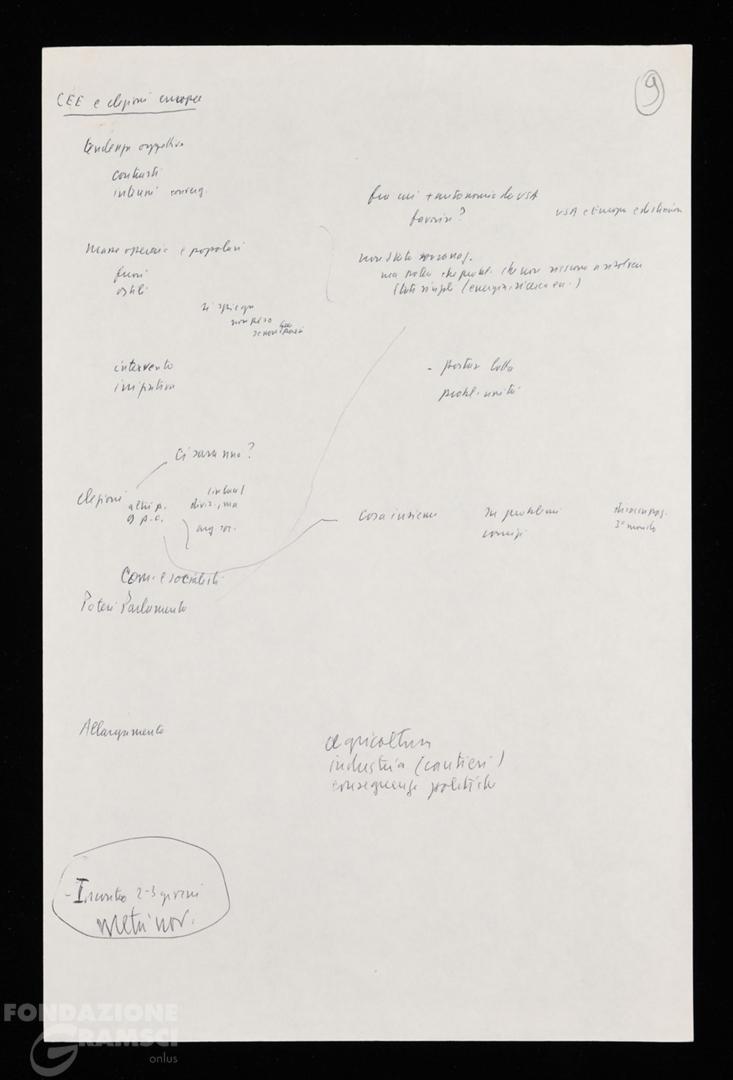 9
CEE e elezioni europee
tendenza oggettiva
contrasti
fra cui + autonomia da USA
favorire?
USA e Europa e distensione
masse operaie e popolari
fuori
ostili
non Stato sovranaz.
ma poteri che probl. che non riescono a risolvere
Stati singoli (energia, ricerca ecc.)
si spiega
non peso
intervento
iniziativa
- portare lotta
probl. unità
ci saranno?
elezioni
altri p.
Cosa insieme
su problemi
comuni
3° mondo
Com. e socialisti
Poteri Parlamento
Allargamento
agricoltura
industria (cantieri)
conseguenze politiche
- Incontro 2-3 giorni
metà nov.
FONDAZIONE
GRAMSCI
onlus